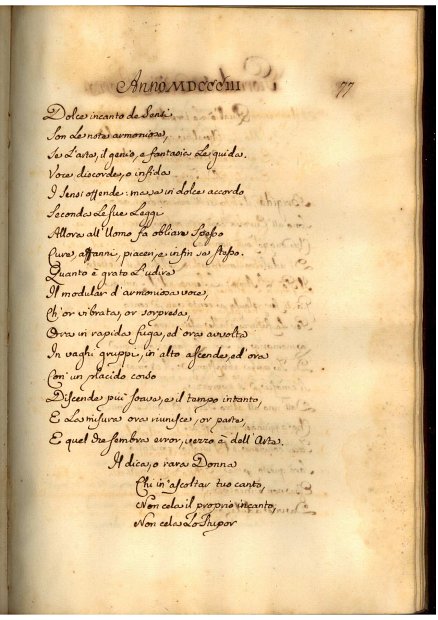 Anno MDCCCIII
77
Dolce incanto de Sensi
Son Le note armoniose,
Se L'arte, il genio, e fantasia Le guida.
Voce discorde, o infida
I Sensi offende: ma se in dolce accordo
Seconda Le sue Leggi
Allora all'Uomo fa obliare Spesso
Cure, affanni, piacer, e infin se stesso.
Quanto è grato L'udire
Il modular d'armoniosa voce,
Ch'or vibrata, or sorpresa,
Ora in rapida fuga, ed'ora avvolta
In vaghi gruppi, in alto ascende, ed'ora
Con'un placido corso
Discende più soave, e il tempo intanto,
E La misura ora riunisce, or parte,
E quel che sembra error, vezzo è dell'Arte.
Il dica, o rara Donna
Chi in'ascoltar tuo canto,
Non cela il proprio incanto,
Non cela Lo Stupor